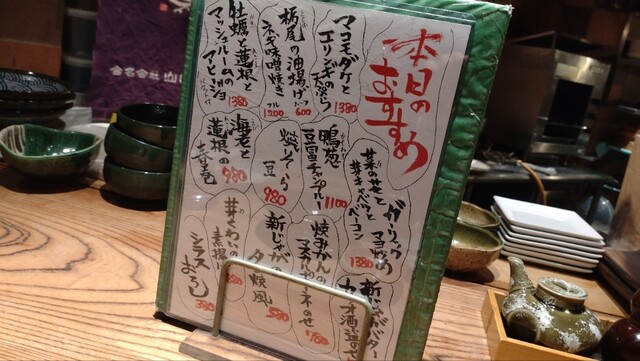 本日の
おすすめ
マコモダケと
エリンギの天ぷら
1380
栃尾の油揚げ
ネギ味噌焼き
ハーフ 600
フル 1200
牡蠣と蓮根と
マッシュルームの
アヒージョ
1380
ガーリック
マヨ炒め
1380
芽キャベツと
ベーコン
鴨葱
豆富チャンプルー
1100
そら豆
980
海老と
蓮根の
春巻
980
新じゃがバター
酒盗のせ
焼みかんの
マスカルポーネのせ
780
新じゃがの
タコ焼風
580
素揚げ
シラス
おろし
380
合名会社